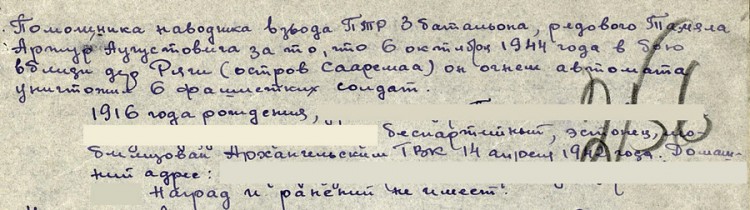 Помощника наводчика взвода ПТР 3 батальона, рядового Тамяла
Артур Аугустовича за то, что 6 октября 1944 года в бою
вблизи дер Ряги (остров Сааремаа) он огнем автомата
уничтожил 6 фашистких солдат.
1916 года рождения,
беспартийный, эстонец, мо-
билизован Архангельским ГВК 14 апреля года. Домаш-
ний адрес:
Наград и ранений не имеет.